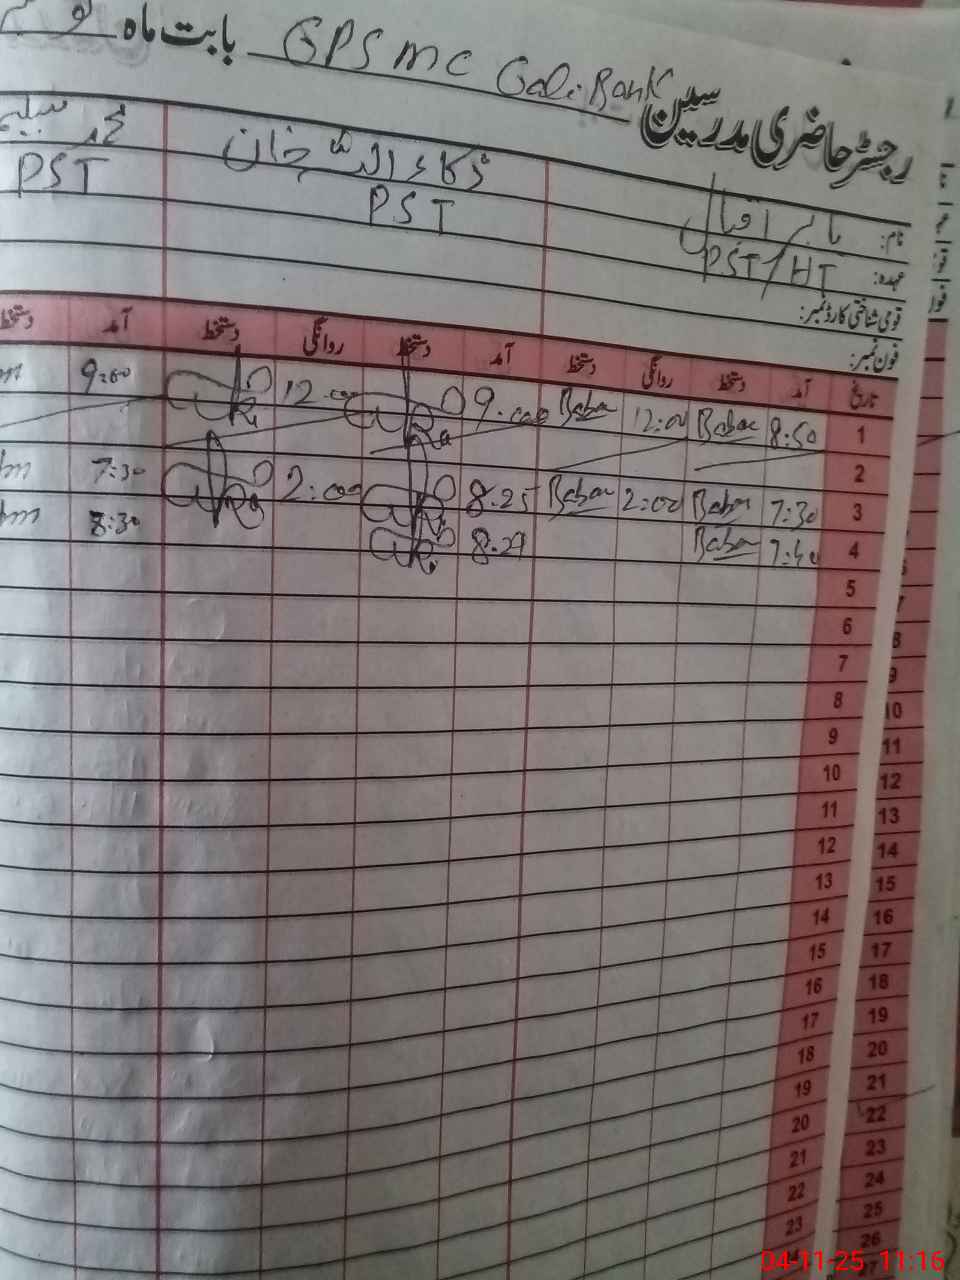 رجسٹر حاضری مدرسین GPS MC Gali Bank بابت ماہ
نام: بابر اقبال ذکاء اللہ خان محمد
عہدہ: PST/HT PST PST
قومی شناختی کارڈ نمبر:
فون نمبر:
تاریخ آمد دستخط روانگی دستخط آمد دستخط روانگی دستخط آمد دستخط
1 8:50 Babar 12:00 Babar 9:00 12:00 9:00
2
3 7:30 Babar 2:00 Babar 8:25 2:00 7:30
4 7:40 Babar 8:27 8:30
5
6
7
8
9
10
11
12
13
14
15
16
17
18
19
20
21
22
23
8
9
10
11
12
13
14
15
16
17
18
19
20
21
22
23
24
25
26
04-11-25 11:16